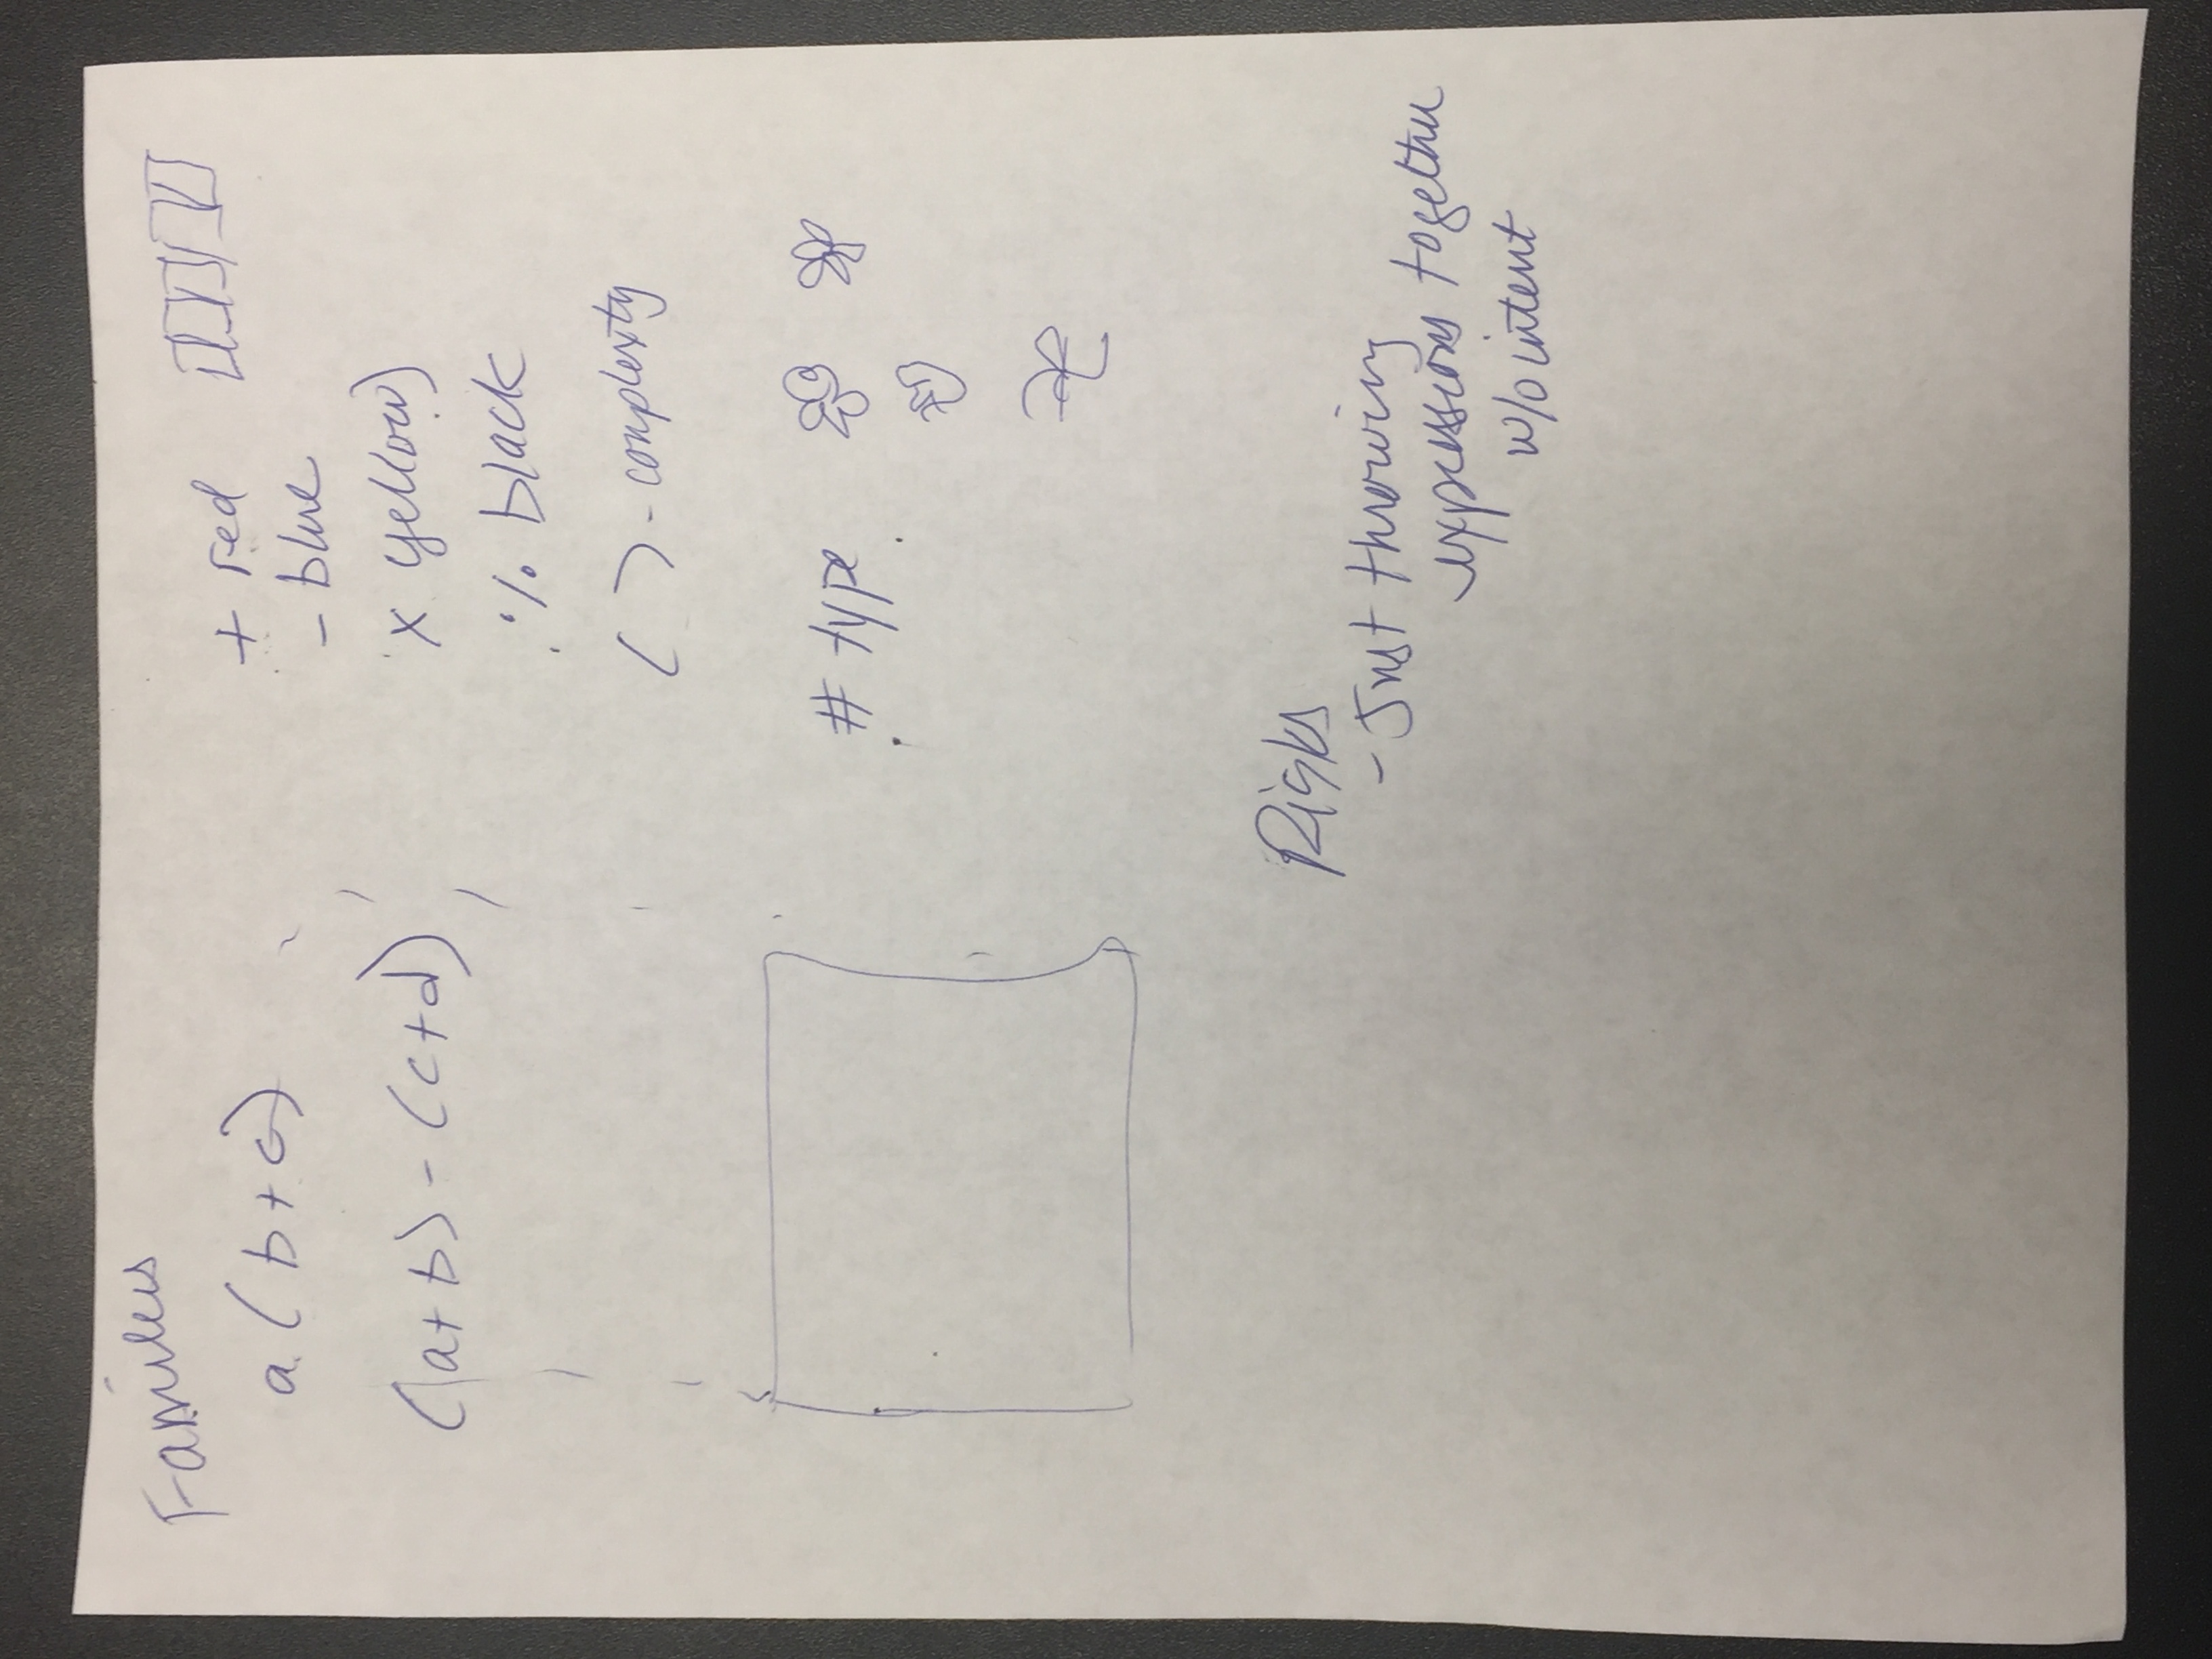 Families
a (b+c)
(a+b) - (c+d)
+ red
- blue
x yellow
% black
( ) - complexity
# type
Risks
- Just throwing
expressions together
w/o intent